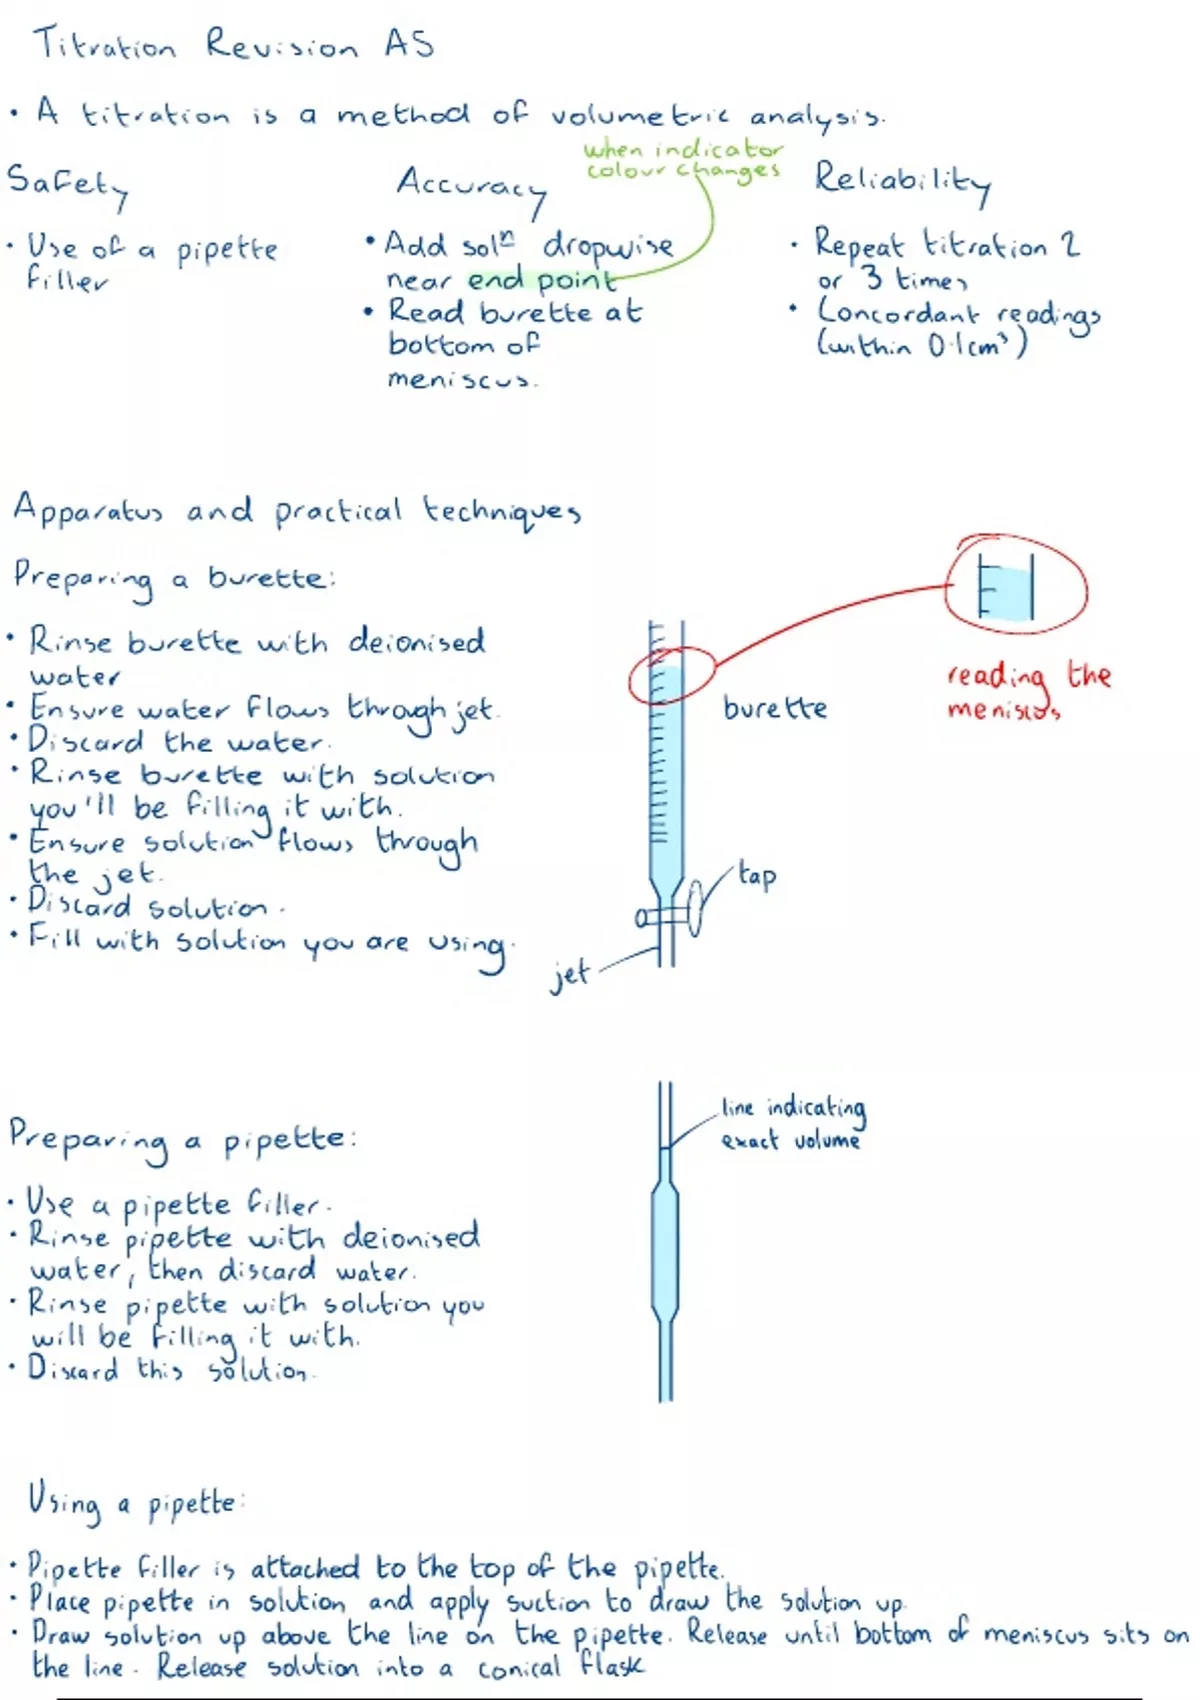 Titration Revision AS
• A titration is a method of volumetric analysis.
when indicator
colour changes
Safety
• Use of a pipette
filler
Accuracy
• Add solⁿ dropwise
near end point
• Read burette at
bottom of
meniscus.
Reliability
• Repeat titration 2
or 3 times
• Concordant readings
(within 0.1cm³)
Apparatus and practical techniques
Preparing a burette:
• Rinse burette with deionised
water
• Ensure water flows through jet.
• Discard the water.
• Rinse burette with solution
you'll be filling it with.
• Ensure solution flows through
the jet.
• Discard solution.
• Fill with solution you are using.
burette
reading the
meniscus
tap
jet
Preparing a pipette:
• Use a pipette filler.
• Rinse pipette with deionised
water, then discard water.
• Rinse pipette with solution you
will be filling it with.
• Discard this solution.
line indicating
exact volume
Using a pipette:
• Pipette filler is attached to the top of the pipette.
• Place pipette in solution and apply suction to draw the solution up.
• Draw solution up above the line on the pipette. Release until bottom of meniscus sits on
the line. Release solution into a conical flask